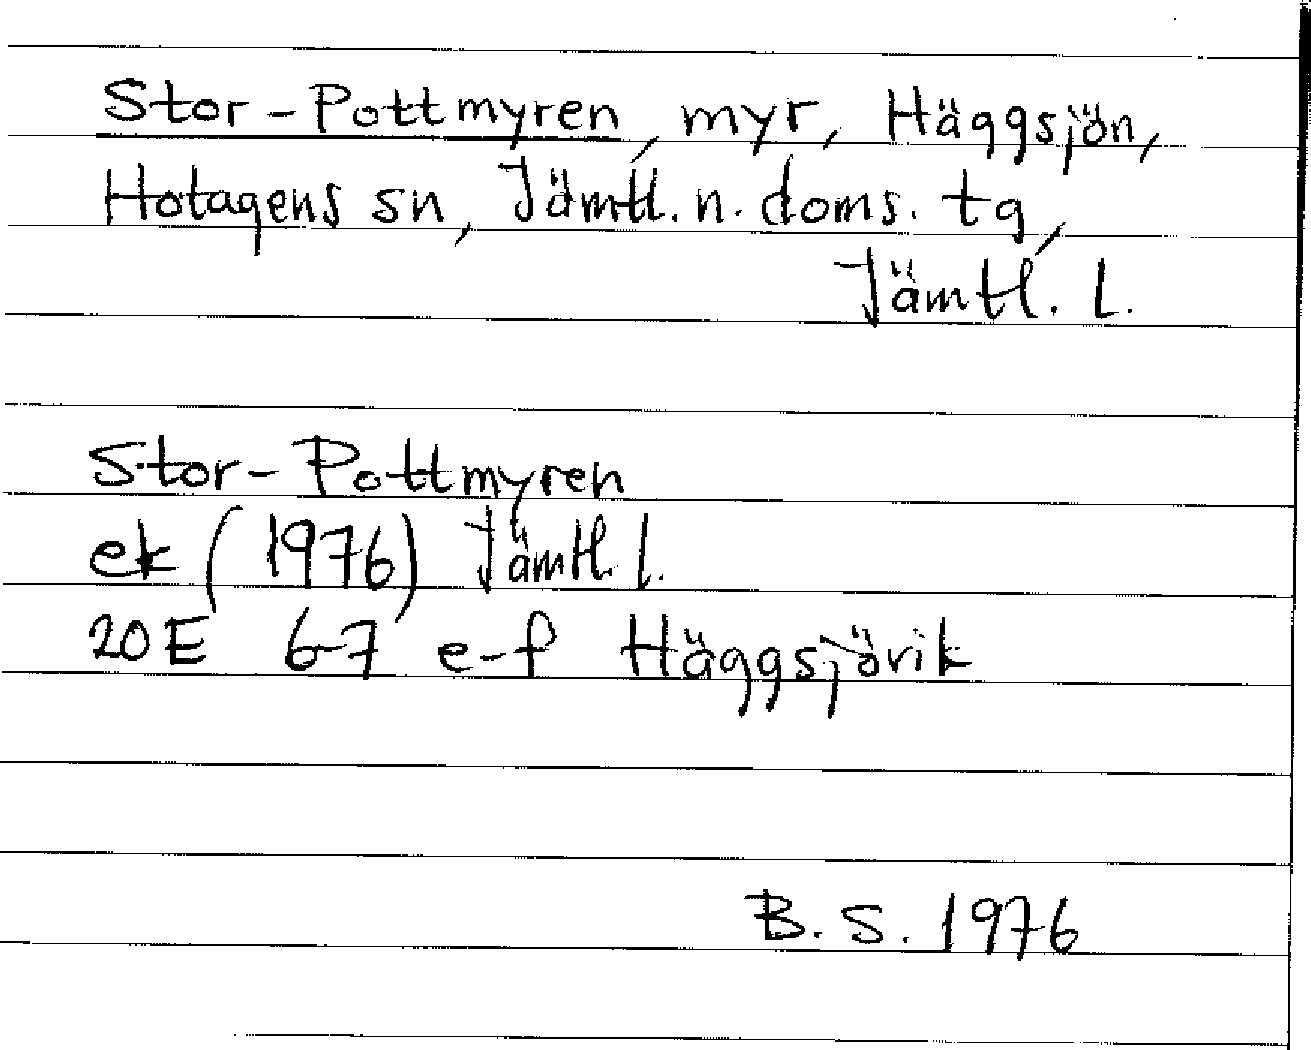 Stor-Pottmyren, myr, Häggsjön,
Hotagens sn, Jämtl. n. doms. tg,
Jämtl. l.
Stor-Pottmyren
ek (1976) Jämtl. l.
20E 6-7 e-f Häggsjövik
B. S. 1976